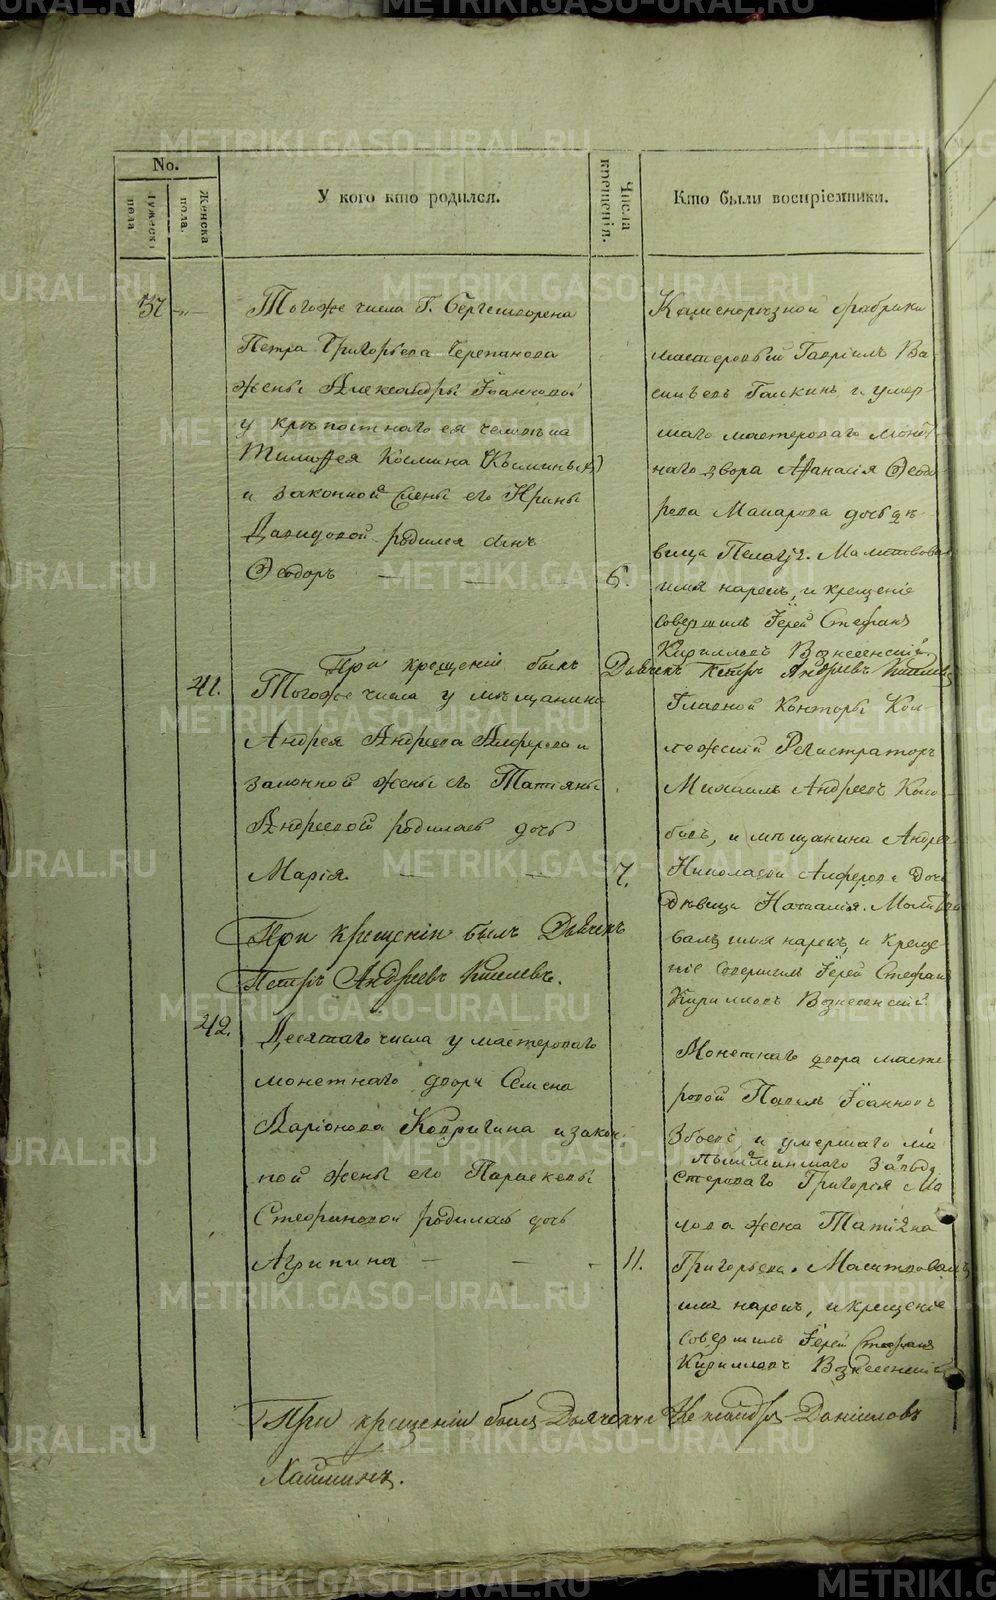 No.
Мужеска пола
Женска пола.
У кого кто родился.
Числа крещенія.
Кто были воспріемники.
37
Тогоже числа Г.
Петра Григорьева Черепанова
жены Александры Іоанновой
у крѣпостнаго ея человѣка
Тимофея Космина (Косминыхъ)
и законной жены его Ирины
Давидовой родился сынъ
Ѳеодоръ
6.
Каменорѣзной фабрики
мастеровый Гавріилъ Ва
сильевъ Галкинъ и умер-
шаго мастероваго монет
наго двора Афанасія Ѳеодо
рова Макарова дочь дѣ-
вица Пелагія. Молитвовалъ
имя нарекъ, и крещеніе
совершилъ Іерей Стефанъ
Кирилловъ Вознесенскій.
При крещеніи былъ Дьячекъ Петръ Андреевъ
41.
Тогоже числа у мѣщанина
Андрея Андреева Алферова и
законной жены его Татіяны
Андреевой родилась дочь
Марія
7.
Главной Конторы Кол-
лежскій Регистраторъ
Михаилъ Андреевъ Коло
бовъ, и мѣщанина Андрея
Николаева Алферова дочь
дѣвица Наталія. Молитво
валъ имя нарекъ, и креще
ніе совершилъ Іерей Стефанъ
Кирилловъ Вознесенскій.
При крещеніи былъ Дьячекъ
Петръ Андреевъ
42.
Десятаго числа у мастероваго
монетнаго двора Семена
Ларіонова Ковригина и закон
ной жены его Параскевы
Стефановой родилась дочь
Агрипина
11.
Монетнаго двора масте-
ровой Павелъ Іоанновъ
Збоевъ и умершаго ма
Пышминскаго завода
стероваго Григорія Ма
лова жена Татіяна
Григорьева. Молитвовалъ
имя нарекъ, и крещеніе
совершилъ Іерей Стефанъ
Кирилловъ Вознесенскій
При крещеніи былъ Дьячекъ Александръ Даніиловъ
METRIKI.GASO-URAL.RU